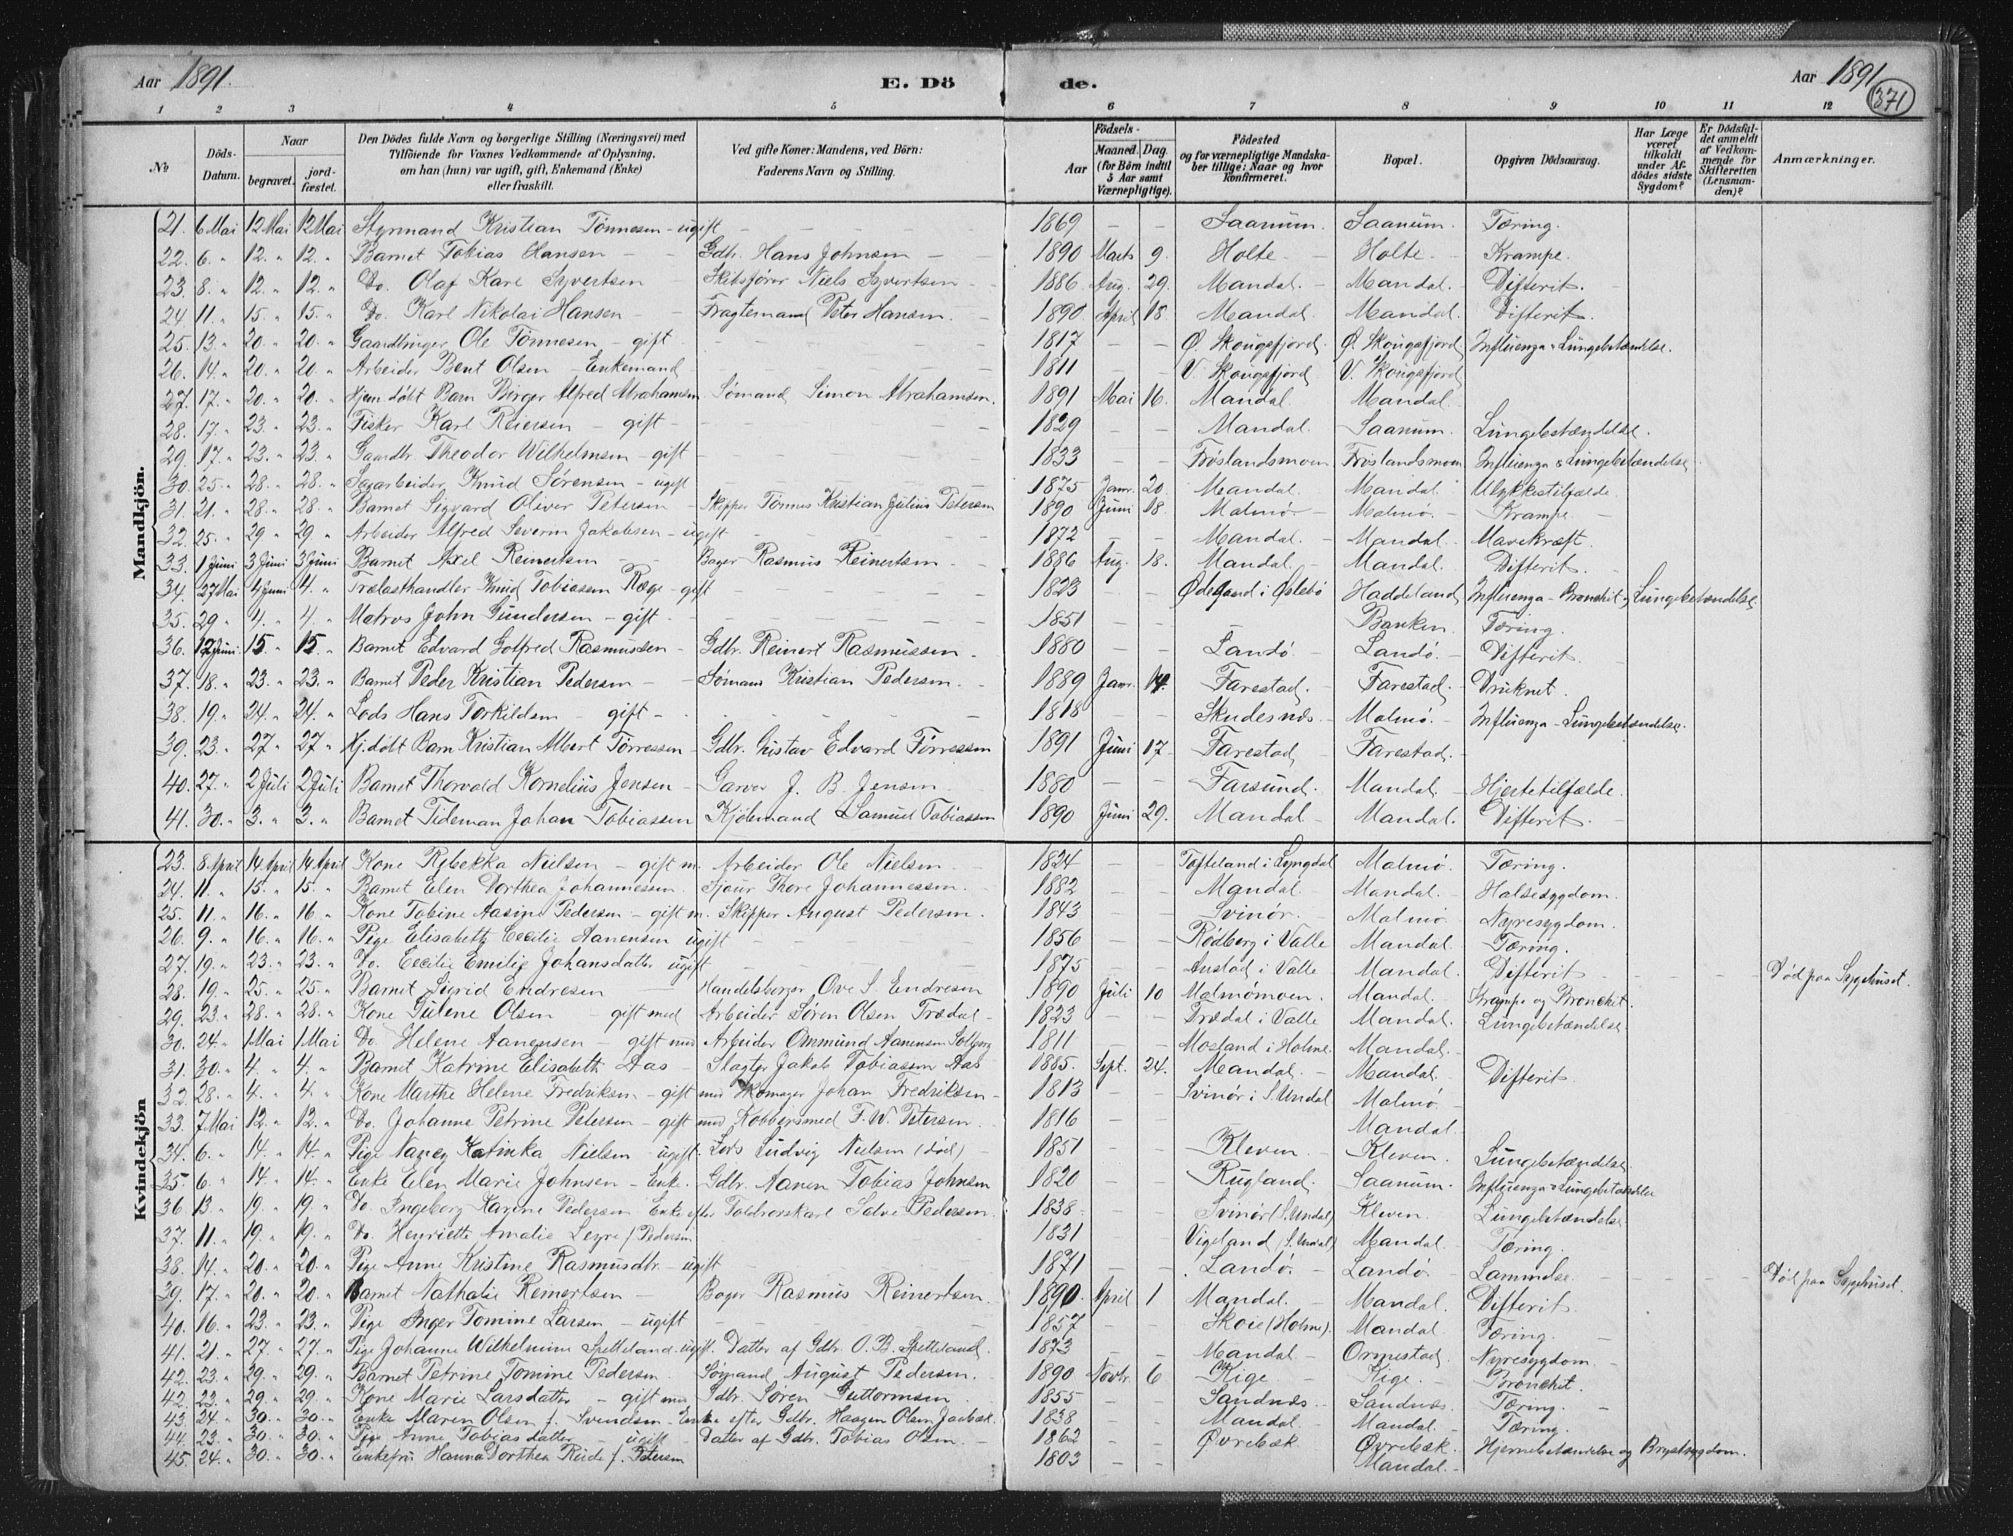 Aar 1891. E. Dö de. Aar 1891
371
1 2 3 4 5 6 7 8 9 10 11 12
№ Döds-Datum. Naar begravet. jordfæstet. Den Dödes fulde Navn og borgerlige Stilling (Næringsvei) med Tilföiende for Voxnes Vedkommende af Oplysning, om han (hun) var ugift, gift, Enkemand (Enke) eller fraskilt. Ved gifte Koner: Mandens, ved Börn: Faderens Navn og Stilling. Födsels- Aar Maaned. Dag. (for Börn indtil 5 Aar samt Værnepligtige). Födested og for værnepligtige Mandskaber tillige: Naar og hvor konfirmeret. Bopæl. Opgiven Dödsaarsag. Har Læge været tilkaldt under Afdödes sidste Sygdom? Er Dödsfaldet anmeldt af Vedkommende for Skifteretten (Lensmanden)? Anmærkninger.
Mandkjön.
21. 6 Mai 12 Mai 12 Mai Styrmand Kristian Tønnesen - ugift - 1869 - - Saanum. Saanum. Tæring.
22. 6. " 12. " 12. " Barnet Tobias Hansen - Gdbr. Hans Johnsen - 1890 Marts 9. Holte - Holte - Krampe.
23. 8. " 12. " 12. " Do. Olaf Karl Syvertsen - Skibsfører Niels Syvertsen - 1886 Aug. 29. Mandal. - Mandal. - Difterit.
24 11. " 15. " 15. " Do. Karl Nikolai Hansen - Fragtemand Peter Hansen. - 1890 April 18. Mandal. Mandal. Difterit.
25. 13. " 20. " 20. " Gaardbruger Ole Tønnesen - gift. - 1817 - - Ø. Skougsfjord. Ø. Skougsfjord. Influenza & Lungebetændelse.
26. 14. " 20. " 20. " Arbeider Bent Olsen - Enkemand - 1811 - - V Skougsfjord V. Skougsfjord
27. 17. " 20. " 20. " Hjemdøbt Barn Birger Alfred Abrahamsen Sømand Simon Abrahamsen. 1891 Mai 16. Mandal Mandal.
28. 17. " 23. " 23. " Fisker Karl Reiersen - gift - 1829 Mandal. Saanum. Lungebetændelse.
29. 17. " 23. " 23. " Gaardbr. Theodor Wilhelmsen - gift - 1833 Frøslandsmoen Frøslandsmoen Influenza & Lungebetændelse
30. 25. " 28. " 28. " Sagarbeider Knud Sørensen - ugift - 1875 Janr. 20. Mandal. Mandal. Ulykkestilfælde.
31. 21. " 28. " 28. " Barnet Sigvard Oliver Petersen - Skipper Tønnes Kristian Julius Petersen 1890 Juni 18. Malmø - Malmø. - Krampe -
32. 25. " 29 " 29. " Arbeider Alfred Severin Jakobsen - ugift - 1872 - - Mandal. - Mandal. Mavekræft.
33. 1 Juni 3 Juni 3 Juni Barnet Axel Reinertsen - Bager Rasmus Reinertsen. - 1886 Aug. 18. Mandal. - Mandal. Difterit. -
34. 27 Mai 4 Juni 4. " Trælasthandler Knud Tobiassen Røge - gift - 1823 - - Ødegaard i Øslebø Haddeland Influenza - Bronchit & Lungebetændelse
35. 29 " 4. " 4. " Matros John Gundersen - gift. - 1851 - - Banken. Tæring.
36. 12 Juni. 15. " 15. " Barnet Edvard Gotfred Rasmussen - Gdbr. Reinert Rasmussen. - 1880 - - Landø. - Landø. - Difterit.
37. 18. " 23. " 23. " Barnet Peder Kristian Pedersen - Sømand Kristian Pedersen. - 1889 Janr. 14. Farestad. - Farestad. - Druknet.
38. 19. " 24. " 24. " Lods Hans Torkildsen - gift - 1818 - - Skudesnæs. - Malmø. - Influenza - Lungebetændelse.
39. 23. " 27 " 27 " Hj.døbt Barn Kristian Albert Tørressen - Gdbr. Gustav Edvard Tørressen 1891 Juni 17. Farestad Farestad.
40. 27. " 2 Juli 2 Juli Barnet Thorvald Kornelius Jensen - Garver J. B. Jensen. 1880 - - Farsund. Mandal. - Hjertetilfælde.
41. 30. " 3. " 3. " Barnet Tideman Johan Tobiassen Kjølemand Samuel Tobiassen 1890 Juni 29. Mandal - Mandal. Difterit.
Kvindekjön
23. 8 April 14 April 14 April Kone Rebekka Nielsen - gift m. Arbeider Ole Nielsen 1824 - Tofteland i Lyngdal Malmø. Tæring.
24. 11. " 15. " 15. " Barnet Elen Dorthea Johannessen. Tore Johannessen. 1882 - - Mandal - Mandal. - Halsesygdom.
25. 11. " 16. " 16. " Kone Tobine Aasine Pedersen - gift m. Skipper August Pedersen. 1843 - - Svinør. - Malmø. Nyresygdom.
26. 9. " 16. " 16. " Pige Elisabeth Cecilie Aanensen ugift - 1856 - - Rødberg i Valle Mandal. Tæring.
27. 19. " 23. " 23. " Do. Cecilie Emilie Johansdatter ugift - 1875 - - Austad i Valle Mandal. Difterit - - - Død paa Sygehuset.
28. 19. " 25. " 25. " Barnet Sigrid Endresen - Handelsborger Ove S. Endresen 1890 Juli 10 Malmømoen. Mandal. - Krampe og Bronchit.
29. 23. " 28. " 28. " Kone Gulene Olsen - gift med Arbeider Søren Olsen Trædal - 1823 - - Trædal i Valle Mandal. Lungebetændelse
30. 24. " 1 Mai 1 Mai Do. Helene Aanensen - gift med Arbeider Ommund Aanensen Solberg 1811 - - Mosland i Holme Mandal. -
31. 30. " 4. " 4. " Barnet Katrine Elisabeth Aas - Slagter Jakob Tobiassen Aas 1885. Sept. 24. Mandal. - Mandal. Difterit.
32. 28. " 4. " 4. " Kone Marthe Helene Fredriksen - gift med Skomager Johan Fredriksen - 1813 - - Svinør i S. Undal Malmø -
33. 7 Mai 12. " 12. " Do. Johanne Petrine Petersen - gift med Kobbersmed F. W. Petersen. 1816 - Mandal. -
34. 6. " 14. " 14. " Pige Nancy Katinka Nielsen - ugift. Lods Ludvig Nielsen (død) - 1851 - - Kleven. - Kleven. Lungebetændelse
35. 6. " 14. " 14. " Enke Elen Marie Johnsen - Enk. Gdbr. Aanen Tobias Johnsen 1820 Rugland. Saanum. - Influenza & Lungebetændelse
36. 13. " 19. " 19. " Do. Ingeborg Karine Pedersen Enke efter Toldrosskarl Salve Pedersen. 1838. - - Svinør (S. Undal) Kleven. Lungebetændelse
37. 11. " 19. " 19. " Do. Henriette Amalie Leyre f. Pedersen 1831 - - Vigeland (S. Undal) Mandal. Tæring.
38. 14. " 20. " 20. " Pige Anne Kristine Rasmusdtr. - ugift - 1871 - - Landø. - Landø. Lammelse. - - - Død paa Sygehuset.
39. 17. " 20. " 20. " Barnet Nathalie Reinertsen - Bager Rasmus Reinertsen. 1890. April 1 Mandal. - Mandal. Difterit.
40. 16. " 23. " 23. " Pige Inger Tomine Larsen - ugift - 1857 - - Skoie (Holme). Mandal. Tæring.
41. 21. " 27. " 27. " Pige Johanne Wilhelmine Spetteland ugift. Datter af Gdbr. O. B. Spetteland. 1873 - - Mandal - Ormestad. Nyresygdom. -
42. 23. " 29. " 29. " Barnet Petrine Tomine Pedersen. Sømand August Pedersen. 1890 Novbr. 6 Kige - Kige. - Bronchit.
42. 23. " 29. " 29. " Kone Marie Larsdatter - gift med Gdbr. Søren Guttormsen 1855 - - Sandnæs. Sandnæs. Tæring. -
43. 24. " 30. " 30. " Enke Maren Olsen f. Svendsen - Enke efter Gdbr. Haagen Olsen Jaabæk. 1838 - - Mandal. - Mandal. Tæring.
44. 23. " 30. " 30. " Pige Anne Tobiasdatter - ugift - Datter af Gdbr. Tobias Olsen. - 1862 - - Øvrebæk Øvrebæk. Hjernebetændelse og Brystsygdom.
45. 24. " 30. " 30. " Enkefru Hanna Dorthea Reide f. Petersen 1803 - - Mandal. -